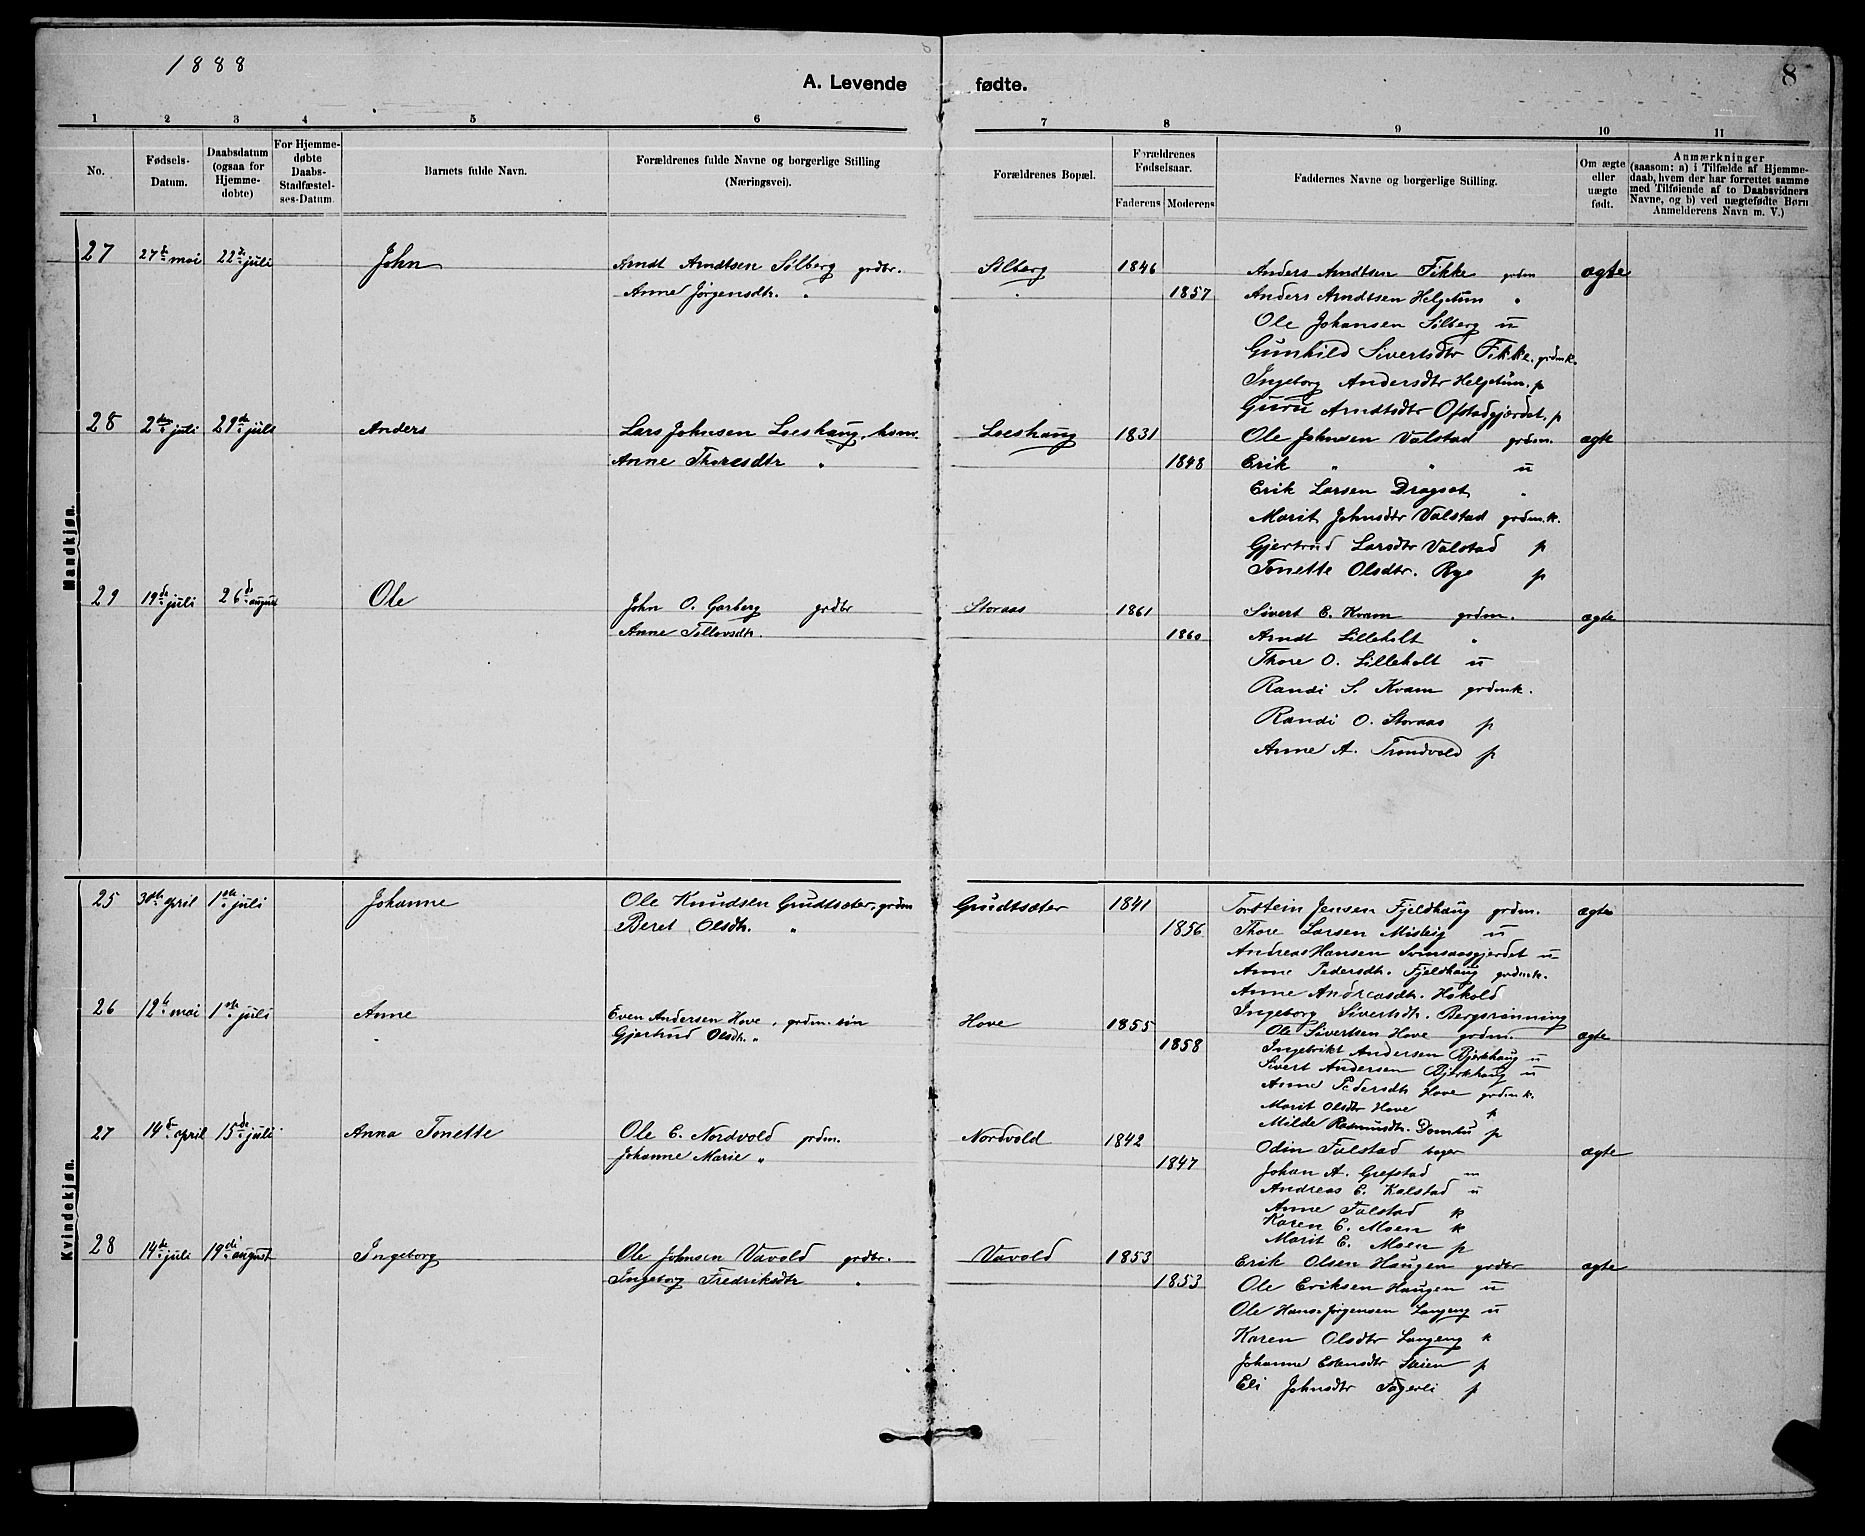 1888
A. Levende fødte.
8
1 2 3 4 5 6 7 8 9 10 11
No.
Fødsels-Datum.
Daabsdatum (ogsaa for Hjemme-døbte)
For Hjemme-døbte Daabs-Stadfæstel-ses-Datum.
Barnets fulde Navn.
Forældrenes fulde Navne og borgerlige Stilling (Næringsvei).
Forældrenes Bopæl.
Forældrenes Fødselsaar.
Faderens Moderens
Faddernes Navne og borgerlige Stilling.
Om ægte eller uægte født.
Anmærkninger (saasom: a) i Tilfælde af Hjemme-daab, hvem der har forrettet samme med Tilføiende af to Daabsvidners Navne, og b) ved uægtefødte Børn Anmelderens Navn m. V.)
Mandkjøn.
27 27de mai 22de juli John Arndt Arndtsen Sølberg grdbr. Sølberg 1846 Anders Arndtsen Fikke grdm ægte
Anne Jørgensdtr. " " 1857 Anders Arndtsen Helgetun "
Ole Johansen Sølberg u
Gunhild Sivertsdtr Fikke. grdmk.
Ingeborg Andersdtr Helgetun. p
Guru Arndtsdtr Ofstadgjerdet. p
28 2den juli 29de juli Anders Lars Johnsen Loeshaug. husm. Loeshaug 1831 Ole Johnsen Valstad grdm. ægte
Anne Thoresdtr " 1848 Erik " " u
Erik Larsen Dragset "
Marit Johnsdtr Valstad grdm.k.
Gjertrud Larsdtr Valstad p
Tonette Olsdtr. Rye p
29 19de juli 26de august Ole John O. Garberg grdbr Storaas 1861 Sivert E. Kvam grdm. ægte
Anne Tollevsdtr. 1860 Arndt Lilleholt "
Thore O. Lilleholt u
Randi S. Kvam grdmk.
Randi O. Storaas p
Anne A. Trondvold p
Kvindekjøn.
25 30de april 1ste juli Johanne Ole Knudsen Grudtsæter. grdm Grudtsæter 1841 Torstein Jensen Fjeldhaug grdm. ægte
Beret Olsdtr. " 1856 Thore Larsen Misteig u
Andreas Hansen Svinsaasgjerdet u
Anne Pedersdtr. Fjeldhaug grdmk.
Anne Andreasdtr. Hokold
Ingeborg Sivertsdtr. Bergsrønning
26 12te mai 1ste juli Anne Even Andersen Hove, grdm. søn Hove 1855 Ole Sivertsen Hove grdm. ægte
Gjertrud Olsdtr. " 1858 Ingebrikt Andersen Bjerkhaug u
Sivert Andersen Bjerkhaug u
Anne Pedersdtr Hove grdmk.
Marit Olsdtr Hove p
Milde Rasmusdtr. Domtu p
27 14de april 15de juli Anna Tonette Ole E. Nordvold grdm. Nordvold 1842 Odin Falstad bager ægte
Johanne Marie " 1847 Johan A. Grefstad m
Andreas E. Kalstad u
Anne Falstad k
Karen E. Moen k
Marit E. Moen p
28 14de juli 19de august Ingeborg Ole Johnsen Vavold grdbr. Vavold 1853 Erik Olsen Haugen grdbr ægte
Ingeborg Fredriksdtr " 1853 Ole Eriksen Haugen u
Ole Hans-Jørgensen Langeng u
Karen Olsdtr Langeng k
Johanne Estensdtr Skien p
Eli Johnsdtr Fagerli p